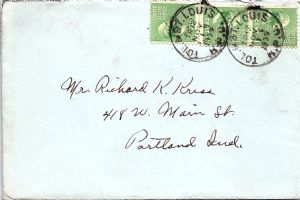 ST. LOUIS ST. LOUIS
Mr. Richard K. Kress
418 W. Main St.
Portland Ind.